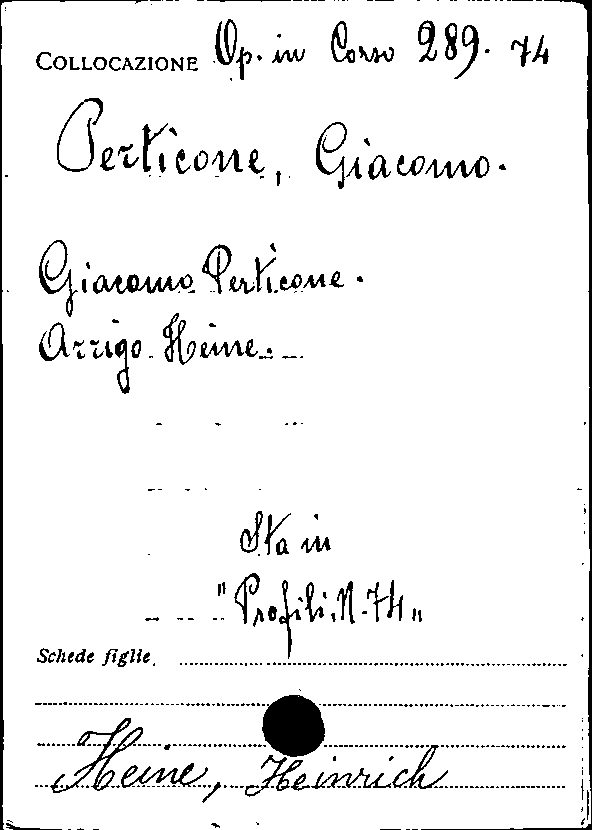 COLLOCAZIONE Op. in Corso 289. 74
Perticone, Giacomo.
Giacomo Perticone.
Arrigo Heine.
Sta in
"Profili. N. 74"
Schede figlie
Heine, Heinrich